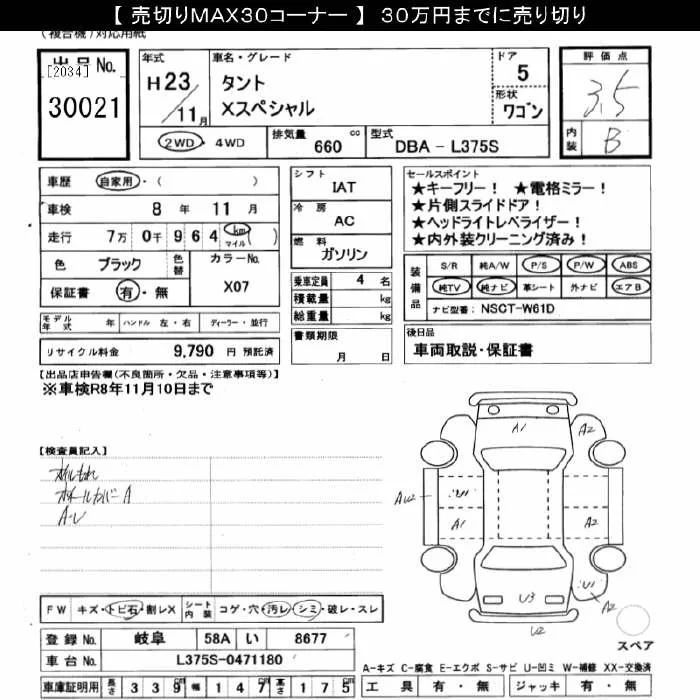 【 売切りMAX30コーナー 】 30万円までに売り切り
(複合機)対応用紙
出品No.
[2034]
30021
年式
H23/11月
車名・グレード
タント
Xスペシャル
ドア
5
形状
ワゴン
評価点
3.5
内装
B
2WD・4WD
排気量 660 cc
型式 DBA - L375S
車歴 自家用・( )
車検 8 年 11 月
走行 7万 0千 9 6 4 km マイル ( )
色 ブラック
色替
カラーNo.
X07
保証書 有・無
モデル年式 年 ハンドル 左・右 ディーラー・並行
リサイクル料金 9,790 円 預託済
シフト
IAT
冷房
AC
燃料
ガソリン
乗車定員 4 名
積載量 kg
総重量 kg
書類期限
月 日
セールスポイント
★キーフリー! ★電格ミラー!
★片側スライドドア!
★ヘッドライトレベライザー!
★内外装クリーニング済み!
装備品
S/R 純A/W P/S P/W ABS
純TV 純ナビ 革シート 外ナビ エアB
ナビ型番: NSCT-W61D
後日品
車両取説・保証書
【出品店申告欄(不良箇所・欠品・注意事項等)】
※車検R8年11月10日まで
【検査員記入】
オイルもれ
ホイールカバーA
A・U
A1
A2
AU2
U1
A1
A2
A2
U1
A2
U3
U2
スペア
FW キズ・トビ石・割レX
シート内装 コゲ・穴・汚レ・シミ・破レ・スレ
登録 No. 岐阜 58A い 8677
車台 No. L375S-0471180
車庫証明用 長さ 3 3 9 cm 幅 1 4 7 cm 高さ 1 7 5 cm
A-キズ C-腐食 E-エクボ S-サビ U-凹ミ W-補修 XX-交換済
工具 有・無 ジャッキ 有・無